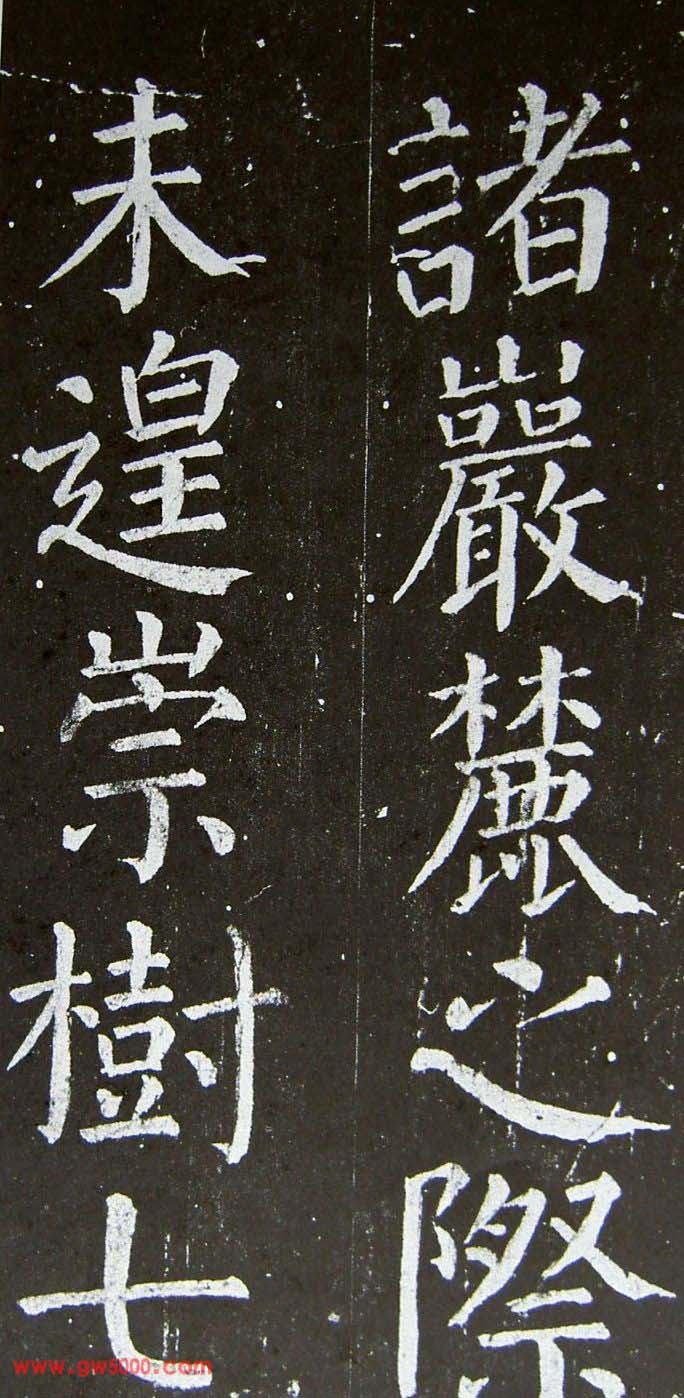 諸巖麓之際
未遑崇樹七
www.gw5000.com